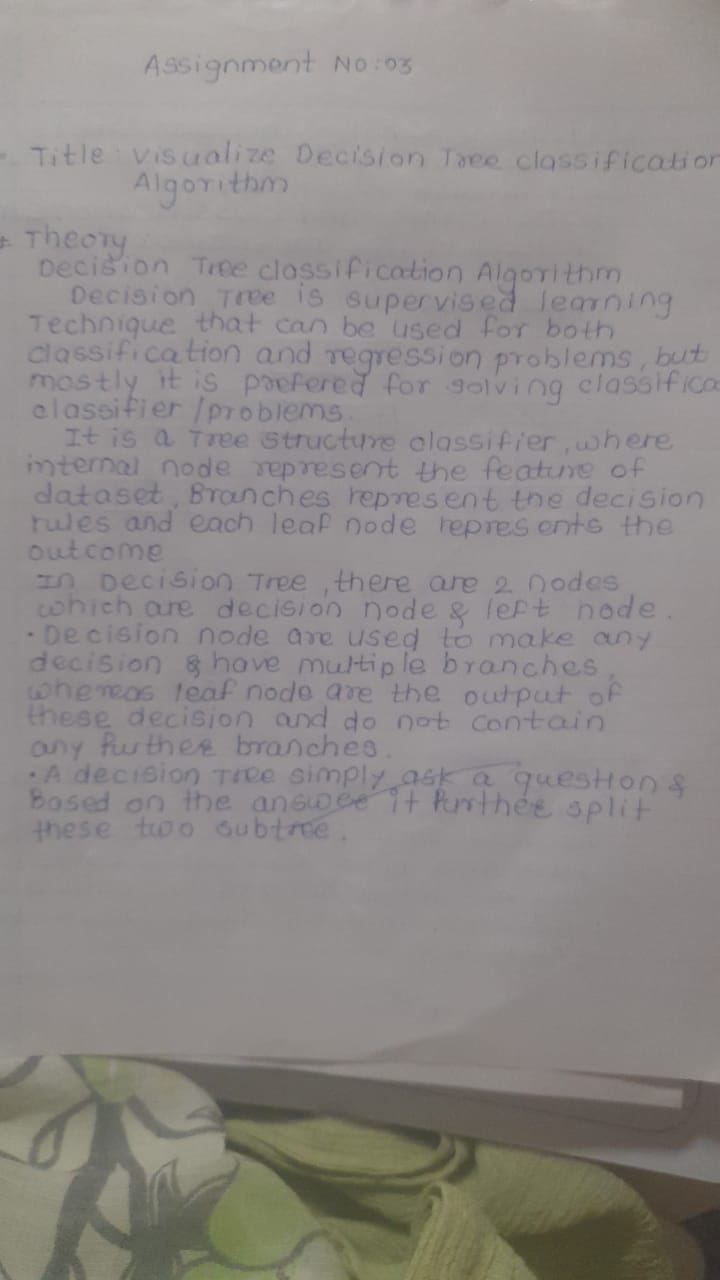 Assignment No:03
Title: visualize Decision Tree classification
Algorithm
Theory
Decision Tree classification Algorithm
Decision Tree is supervised learning
Technique that can be used for both
classification and regression problems, but
mostly it is prefered for solving classifica
classifier /problems.
It is a Tree structure classifier, where
internal node represent the feature of
dataset, Branches represent the decision
rules and each leaf node represents the
outcome
In Decision Tree, there are 2 nodes
which are decision node & left node.
• Decision node are used to make any
decision & have multiple branches,
whereas leaf node are the output of
these decision and do not contain
any further branches.
• A decision Tree simply ask a question &
Based on the answer it further split
these two subtree.